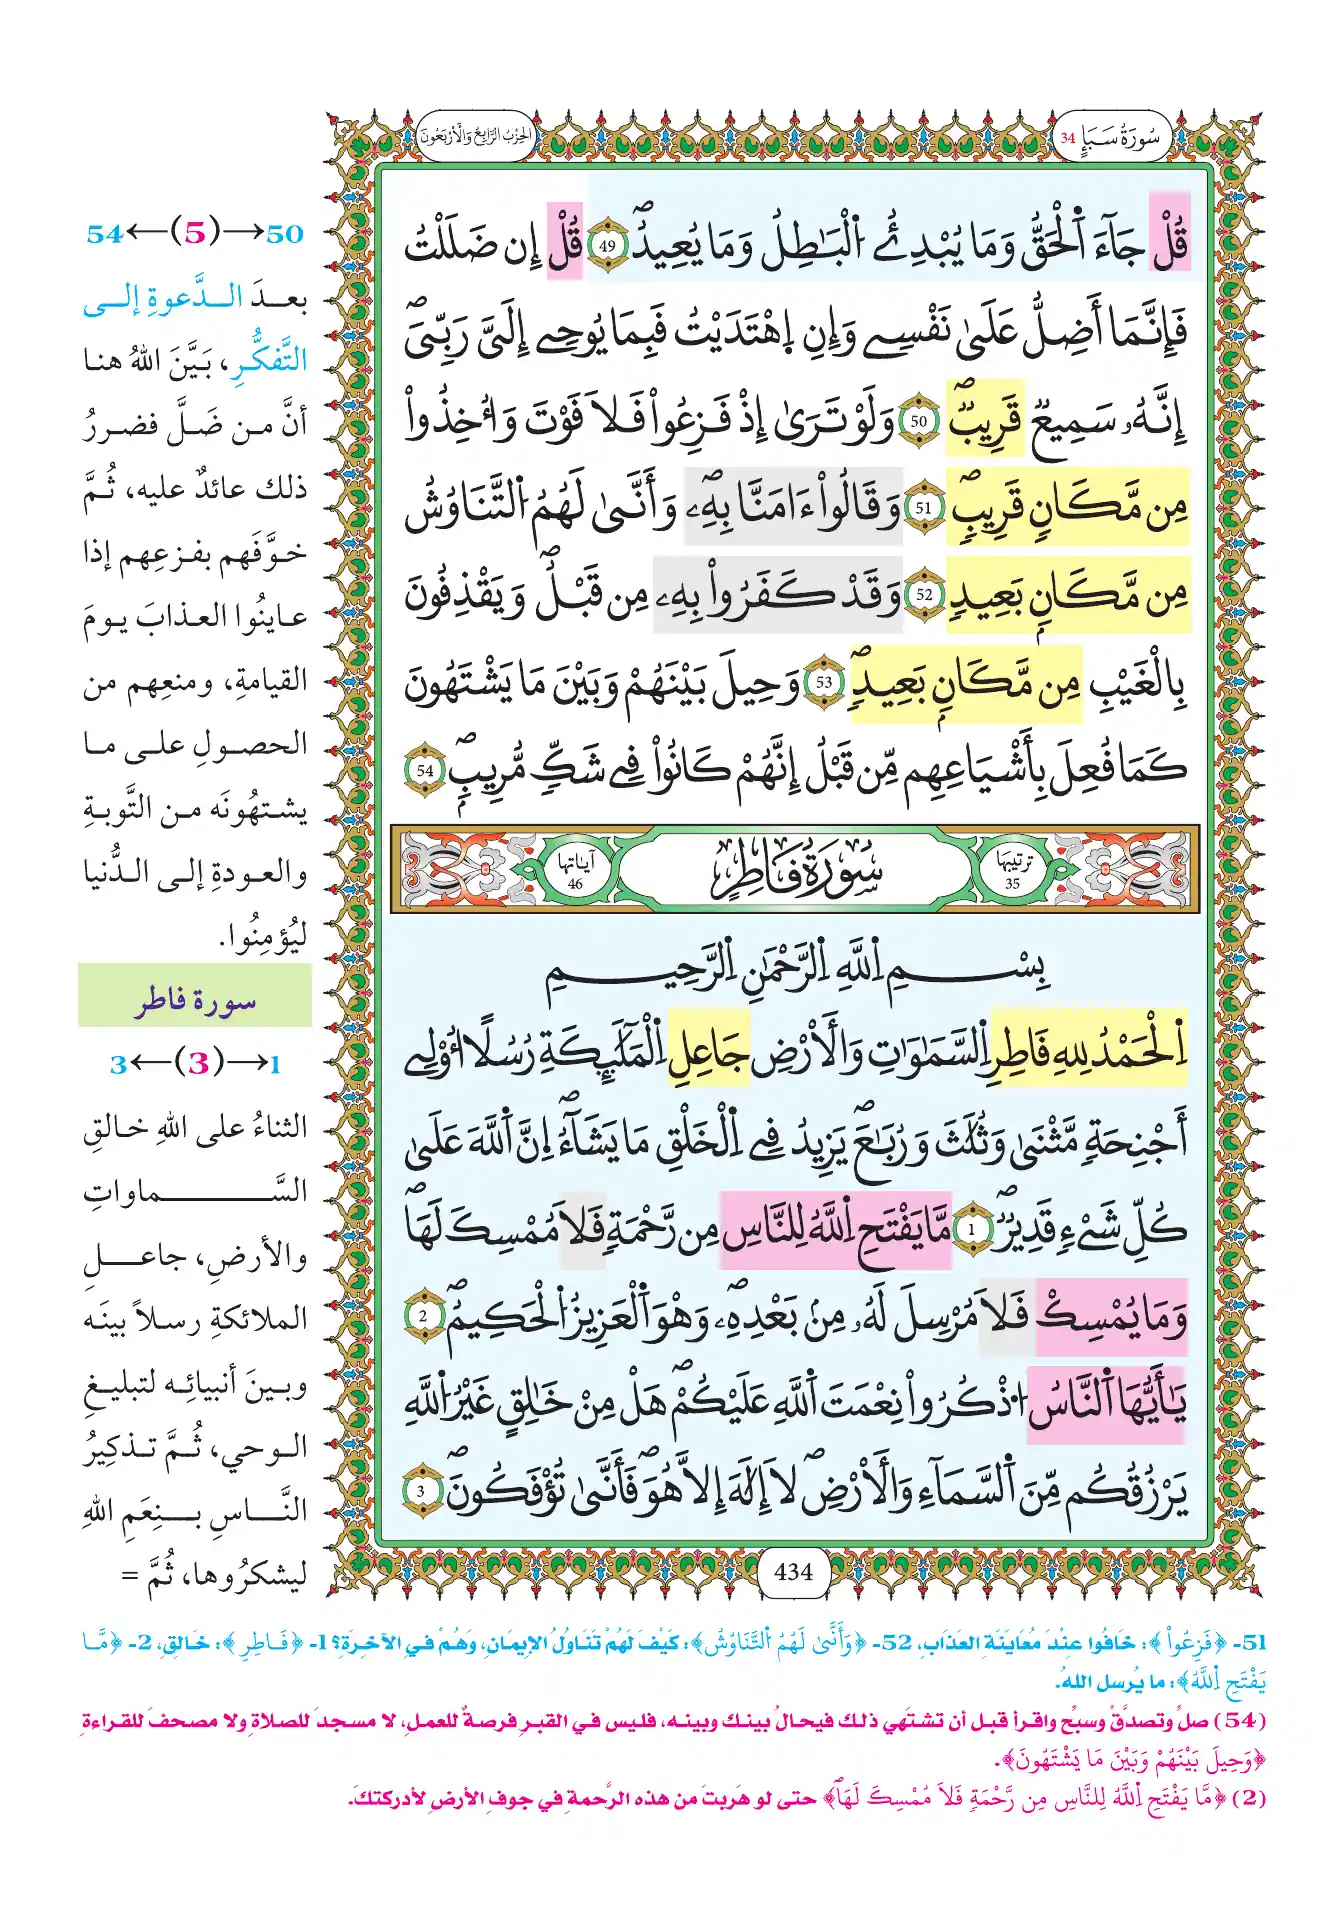 سُورَةُ سَبَإٍ 34
الحِزْبُ الرَّابِعُ وَالأَرْبَعُونَ
قُلْ جَآءَ اَ۬لْحَقُّ وَمَا يُبْدِئُ اُ۬لْبَٰطِلُ وَمَا يُعِيدُۖ 49 قُلْ إِن ضَلَلْتُ
فَإِنَّمَا أَضِلُّ عَلَىٰ نَفْسِے وَإِنِ اِ۪هْتَدَيْتُ فَبِمَا يُوحِے إِلَىَّ رَبِّىَۖ
إِنَّهُۥ سَمِيعٌ قَرِيبٌۖ 50 وَلَوْ تَرَىٰ إِذْ فَزِعُوا۟ فَلَا فَوْتَ وَأُخِذُوا۟
مِن مَّكَانٍ قَرِيبٍۖ 51 وَقَالُوا۟ ءَامَنَّا بِهِۦۖ وَأَنَّىٰ لَهُمُ اُ۬لتَّنَاوُشُ
مِن مَّكَانِۭ بَعِيدٍۖ 52 وَقَدْ كَفَرُوا۟ بِهِۦ مِن قَبْلُۖ وَيَقْذِفُونَ
بِالْغَيْبِ مِن مَّكَانِۭ بَعِيدٍۖ 53 وَحِيلَ بَيْنَهُمْ وَبَيْنَ مَا يَشْتَهُونَ
كَمَا فُعِلَ بِأَشْيَاعِهِم مِّن قَبْلُ إِنَّهُمْ كَانُوا۟ فِے شَكٍّ مُّرِيبٍۖ 54
ترتيبها 35
سُورَةُ فَاطِرٍ
آياتها 46
بِسْمِ اِ۬للَّهِ اِ۬لرَّحْمَٰنِ اِ۬لرَّحِيمِ
اِ۬لْحَمْدُ لِلهِ فَاطِرِ اِ۬لسَّمَٰوَٰتِ وَالْأَرْضِ جَاعِلِ اِ۬لْمَلَٰٓئِكَةِ رُسُلًا ا۟وْلِے
أَجْنِحَةٍ مَّثْنَىٰ وَثُلَٰثَ وَرُبَٰعَۖ يَزِيدُ فِے اِ۬لْخَلْقِ مَا يَشَآءُۖ اِنَّ اَ۬للَّهَ عَلَىٰ
كُلِّ شَےْءٍ قَدِيرٌۖ 1 مَّا يَفْتَحِ اِ۬للَّهُ لِلنَّاسِ مِن رَّحْمَةٍ فَلَا مُمْسِكَ لَهَاۖ
وَمَا يُمْسِكْ فَلَا مُرْسِلَ لَهُۥ مِنۢ بَعْدِهِۦۖ وَهْوَ اَ۬لْعَزِيزُ اُ۬لْحَكِيمُۖ 2
يَٰأَيُّهَا اَ۬لنَّاسُ اُ۟ذْكُرُوا۟ نِعْمَتَ اَ۬للَّهِ عَلَيْكُمْۖ هَلْ مِنْ خَٰلِقٍ غَيْرُ اُ۬للَّهِ
يَرْزُقُكُم مِّنَ اَ۬لسَّمَآءِ وَالْأَرْضِۖ لَا إِلَٰهَ إِلَّا هُوَۖ فَأَنَّىٰ تُؤْفَكُونَۖ 3
434
50→(5)←54
بعدَ الدَّعوةِ إلى
التَّفكُّرِ، بَيَّنَ اللهُ هنا
أنَّ من ضَلَّ فضررُ
ذلك عائدٌ عليه، ثُمَّ
خوَّفَهم بفزعِهم إذا
عاينُوا العذابَ يومَ
القيامةِ، ومنعِهم من
الحصولِ على ما
يشتهُونَه من التَّوبةِ
والعودةِ إلى الدُّنيا
ليُؤمِنُوا.
سورة فاطر
1→(3)←3
الثناءُ على اللهِ خالقِ
السَّماواتِ
والأرضِ، جاعلِ
الملائكةِ رسلاً بينَه
وبينَ أنبيائِه لتبليغِ
الوحي، ثُمَّ تذكيرُ
النَّاسِ بنِعَمِ اللهِ
ليشكرُوها، ثُمَّ =
51- ﴿فَزِعُوا۟﴾: خَافُوا عِنْدَ مُعَايَنَةِ العَذَابِ، 52- ﴿وَأَنَّىٰ لَهُمُ اُ۬لتَّنَاوُشُ﴾: كَيْفَ لَهُمْ تَنَاوُلُ الإِيمَانِ، وَهُمْ فِي الآخِرَةِ؟ 1- ﴿فَاطِرِ﴾: خَالِقِ، 2- ﴿مَّا
يَفْتَحِ اِ۬للَّهُ﴾: ما يُرسل اللهُ.
(54) صلِّ وتصدَّقْ وسبِّح واقرأ قبل أن تشتهي ذلك فيحالُ بينك وبينه، فليس في القبرِ فرصةٌ للعملِ، لا مسجدَ للصلاةِ ولا مصحفَ للقراءةِ
﴿وَحِيلَ بَيْنَهُمْ وَبَيْنَ مَا يَشْتَهُونَ﴾.
(2) ﴿مَّا يَفْتَحِ اِ۬للَّهُ لِلنَّاسِ مِن رَّحْمَةٍ فَلَا مُمْسِكَ لَهَاۖ﴾ حتى لو هَربتَ من هذه الرَّحمةِ في جوفِ الأرضِ لأدركتكَ.